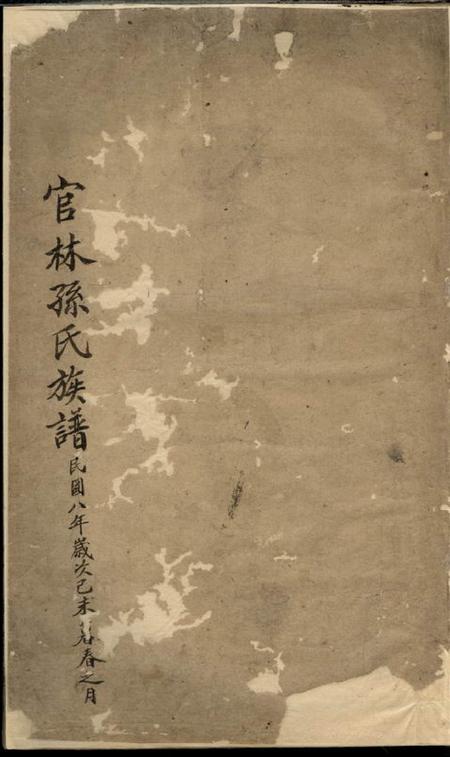 官林孫氏族譜民國八年歲次己未春之月